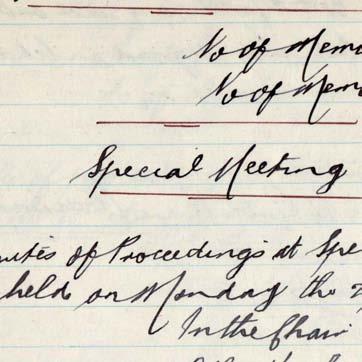 No of Mem
No of Mem
Special Meeting
nutes of Proceedings at Spe
held on Monday the
In the Chair